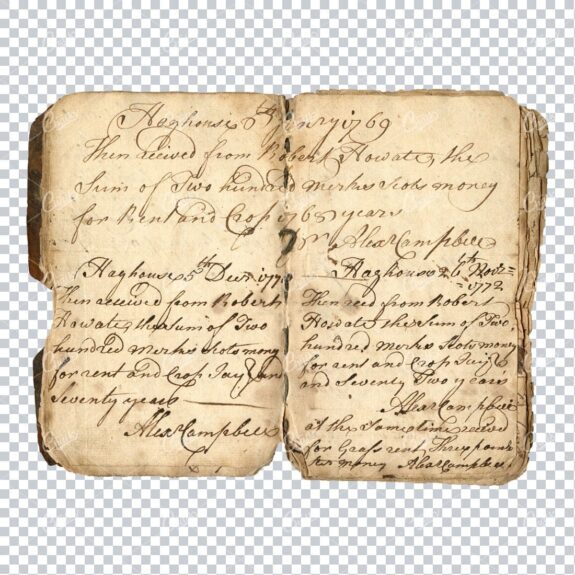 Haghouse 8th Janry 1769
Then receivd from Robert Howate the
Sum of Two hundred Merks Scots money
for Rent and Crop 176 years
Alexr Campbell
Haghouse 5th Decr 177
Then received from Robert
Howate the Sum of Two
hundred Merks Scots mony
for rent and Crop Jaivj and
Seventy years
Alexr Campbell
Haghouse 26th Novr
1772
Then recd from Robert
Howate the Sum of Two
hundred Merks Scots money
for rent and Crop
and Seventy Two years
Alexr Campbell
at the Same time received
for Grass rent Three
money Alexr Campbell